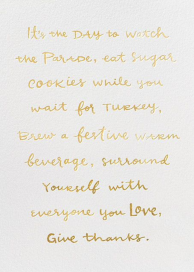 It's the DAY to watch
the Parade, eat Sugar
COOKIES while you
wait for TURKEY,
Brew a festive warm
beverage, surround
Yourself with
everyone you Love,
Give thanks.